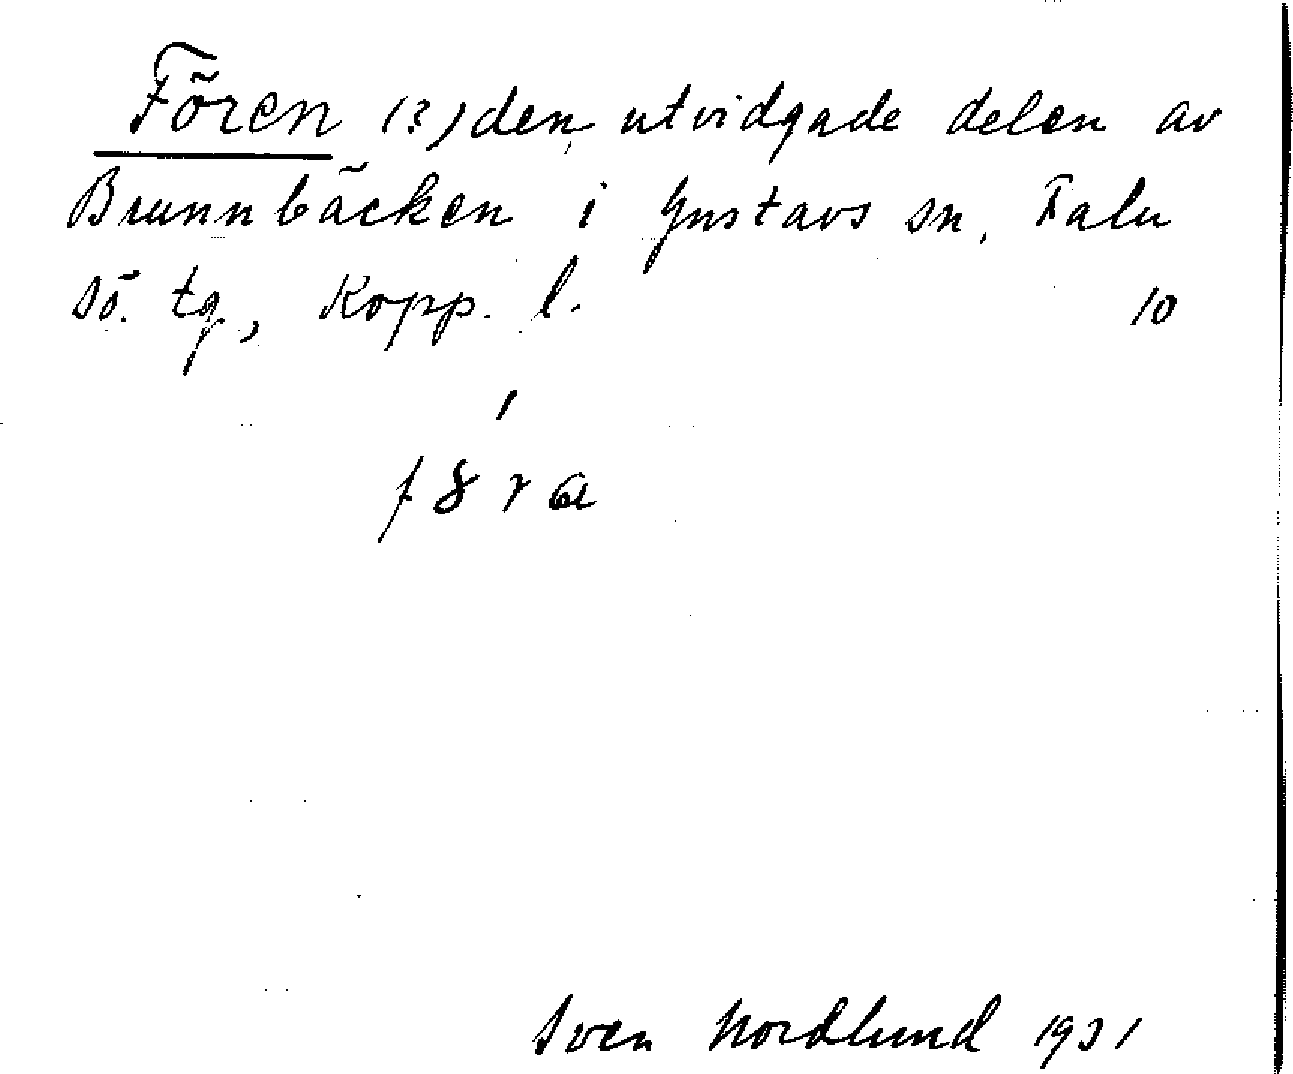 Fören (?) den utvidgade delen av
Brunnbäcken i Gustavs sn, Falu
sö. tg, Kopp. l. 10
Sven Nordlund 1931